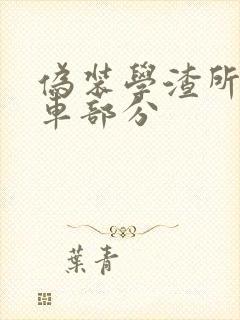 偽裝學渣所
車部分
葉青